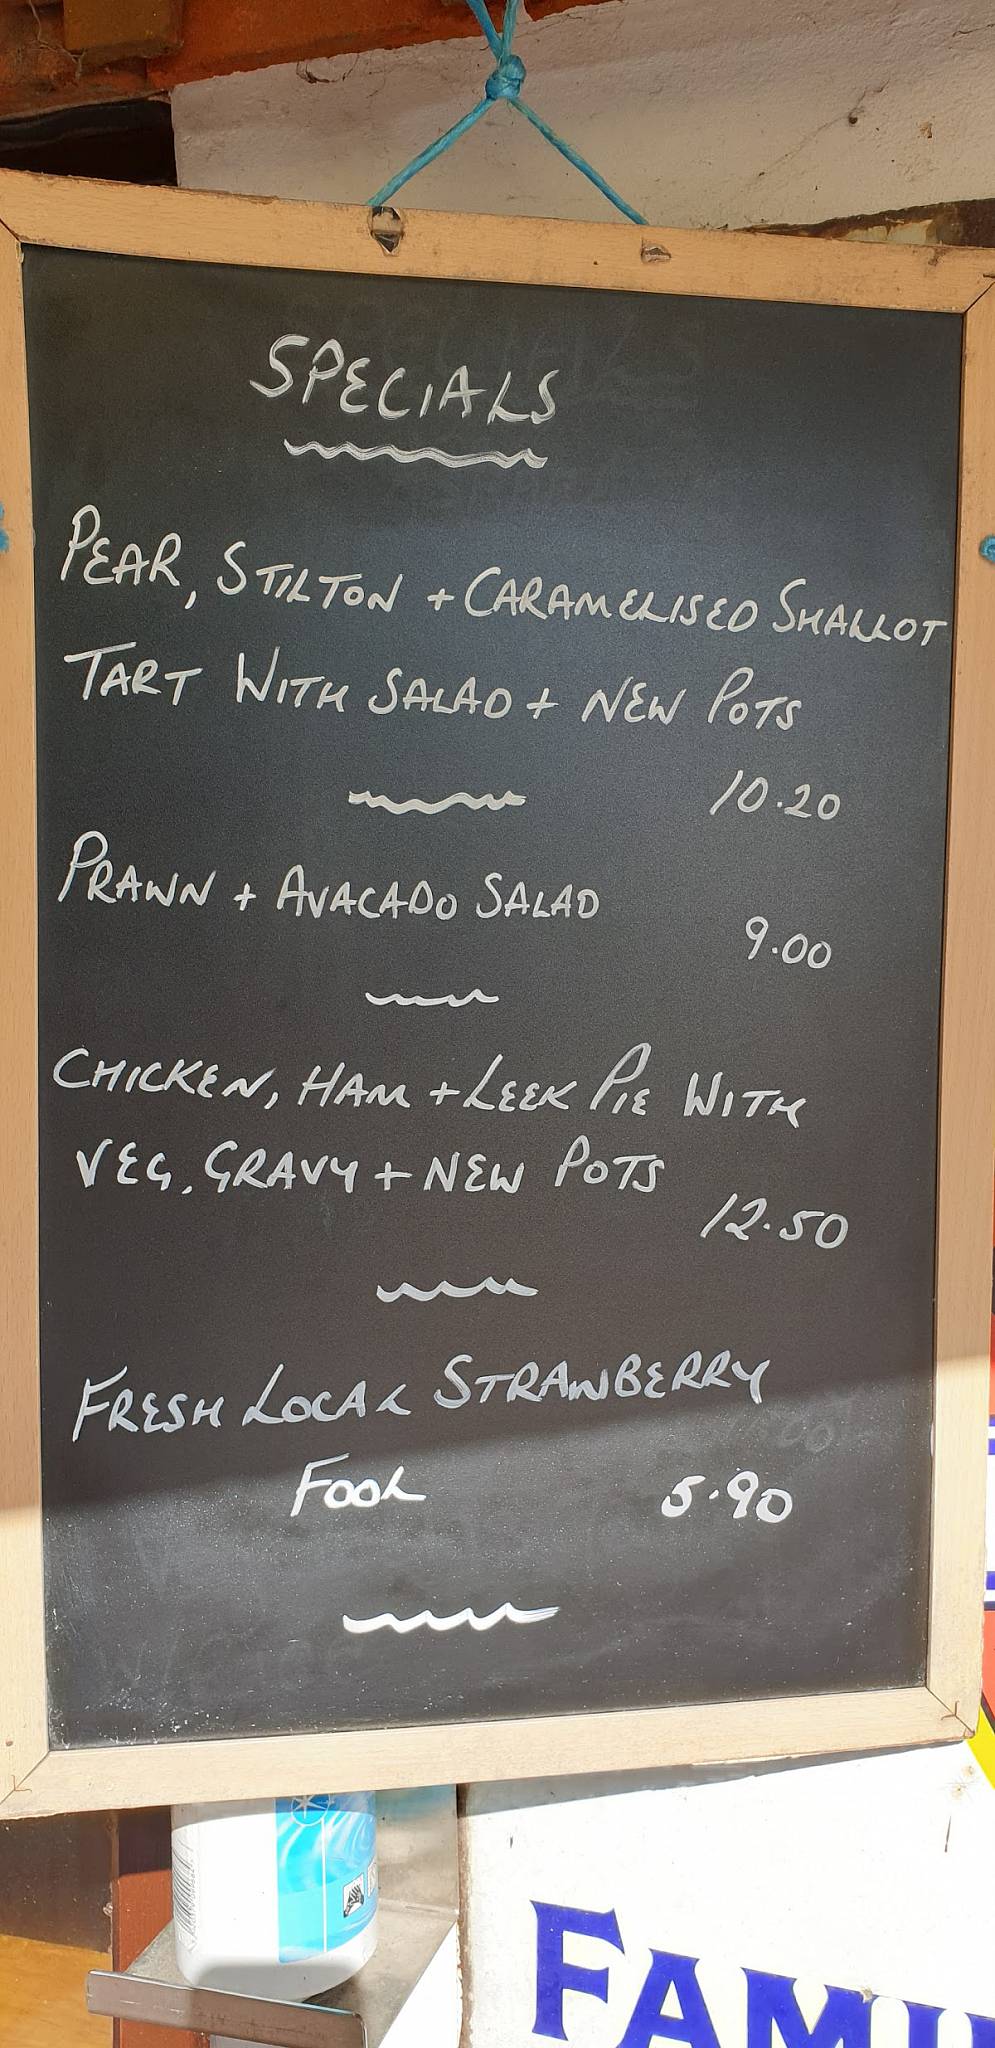 SPECIALS
PEAR, STILTON + CARAMELISED SHALLOT
TART WITH SALAD + NEW POTS
10.20
PRAWN + AVACADO SALAD
9.00
CHICKEN, HAM + LEEK PIE WITH
VEG, GRAVY + NEW POTS
12.50
FRESH LOCAL STRAWBERRY
FOOL 5.90